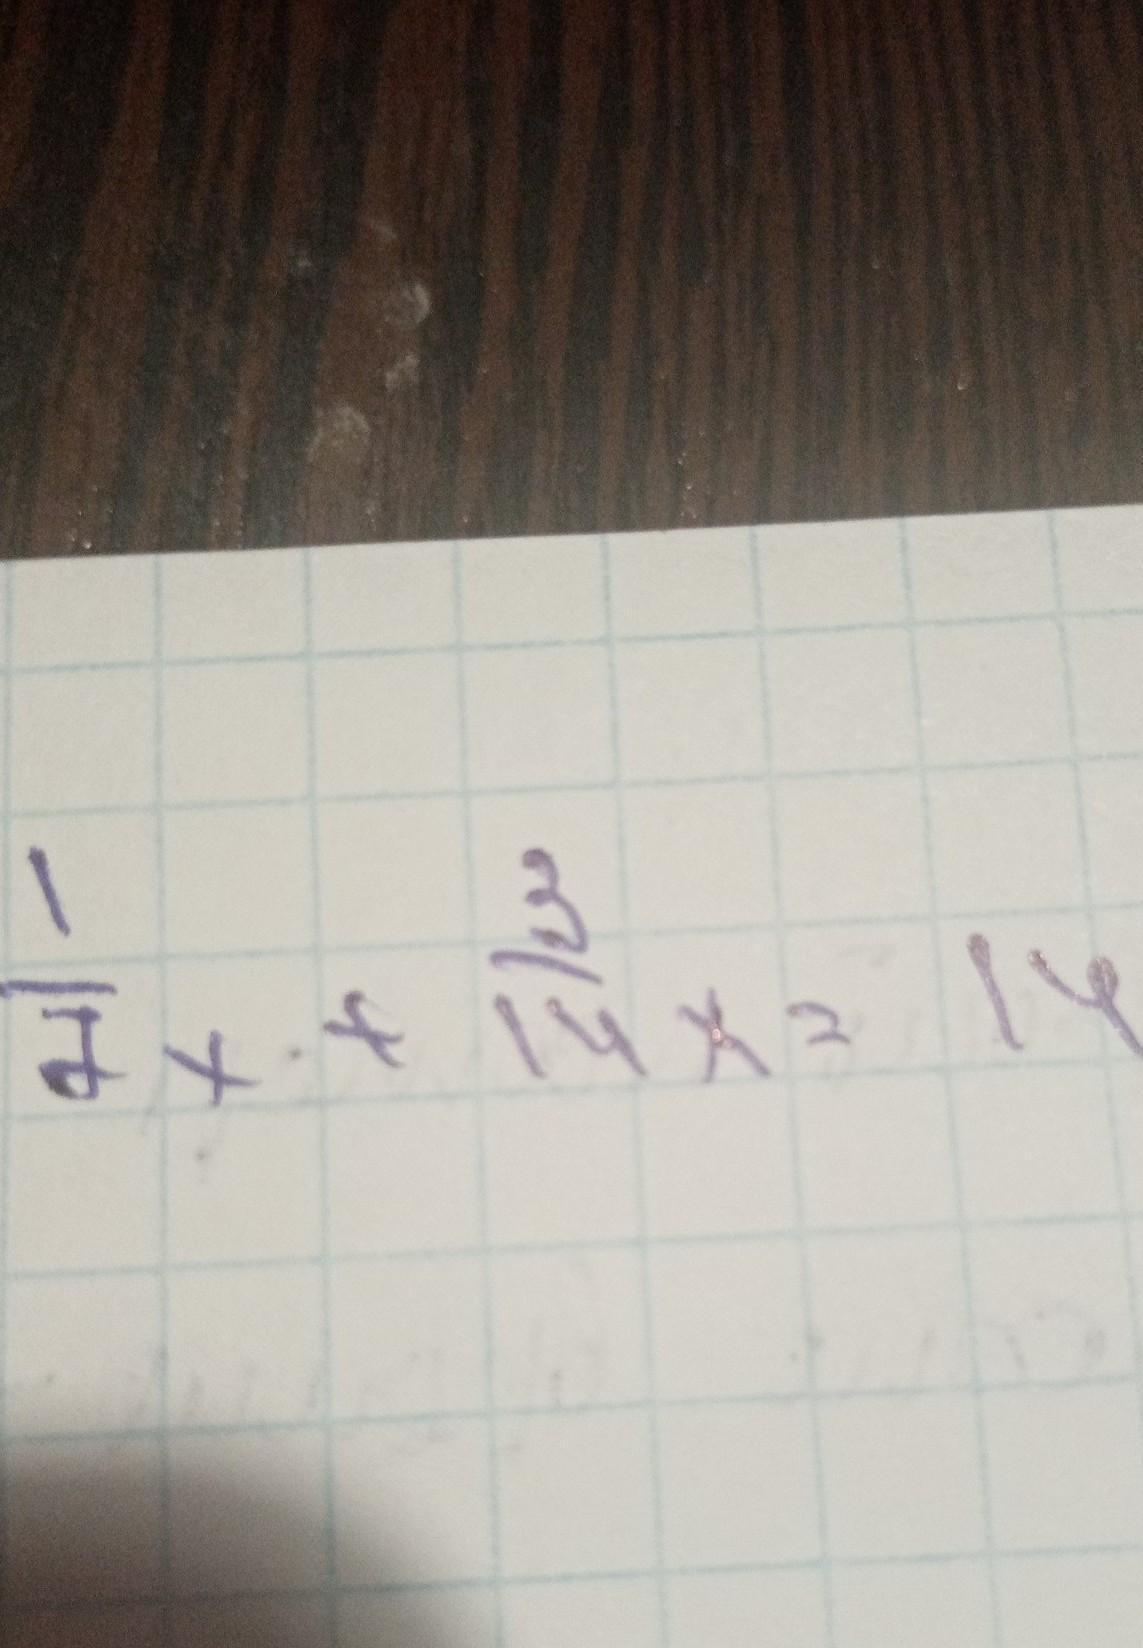 1/7 x + 3/14 x = 14